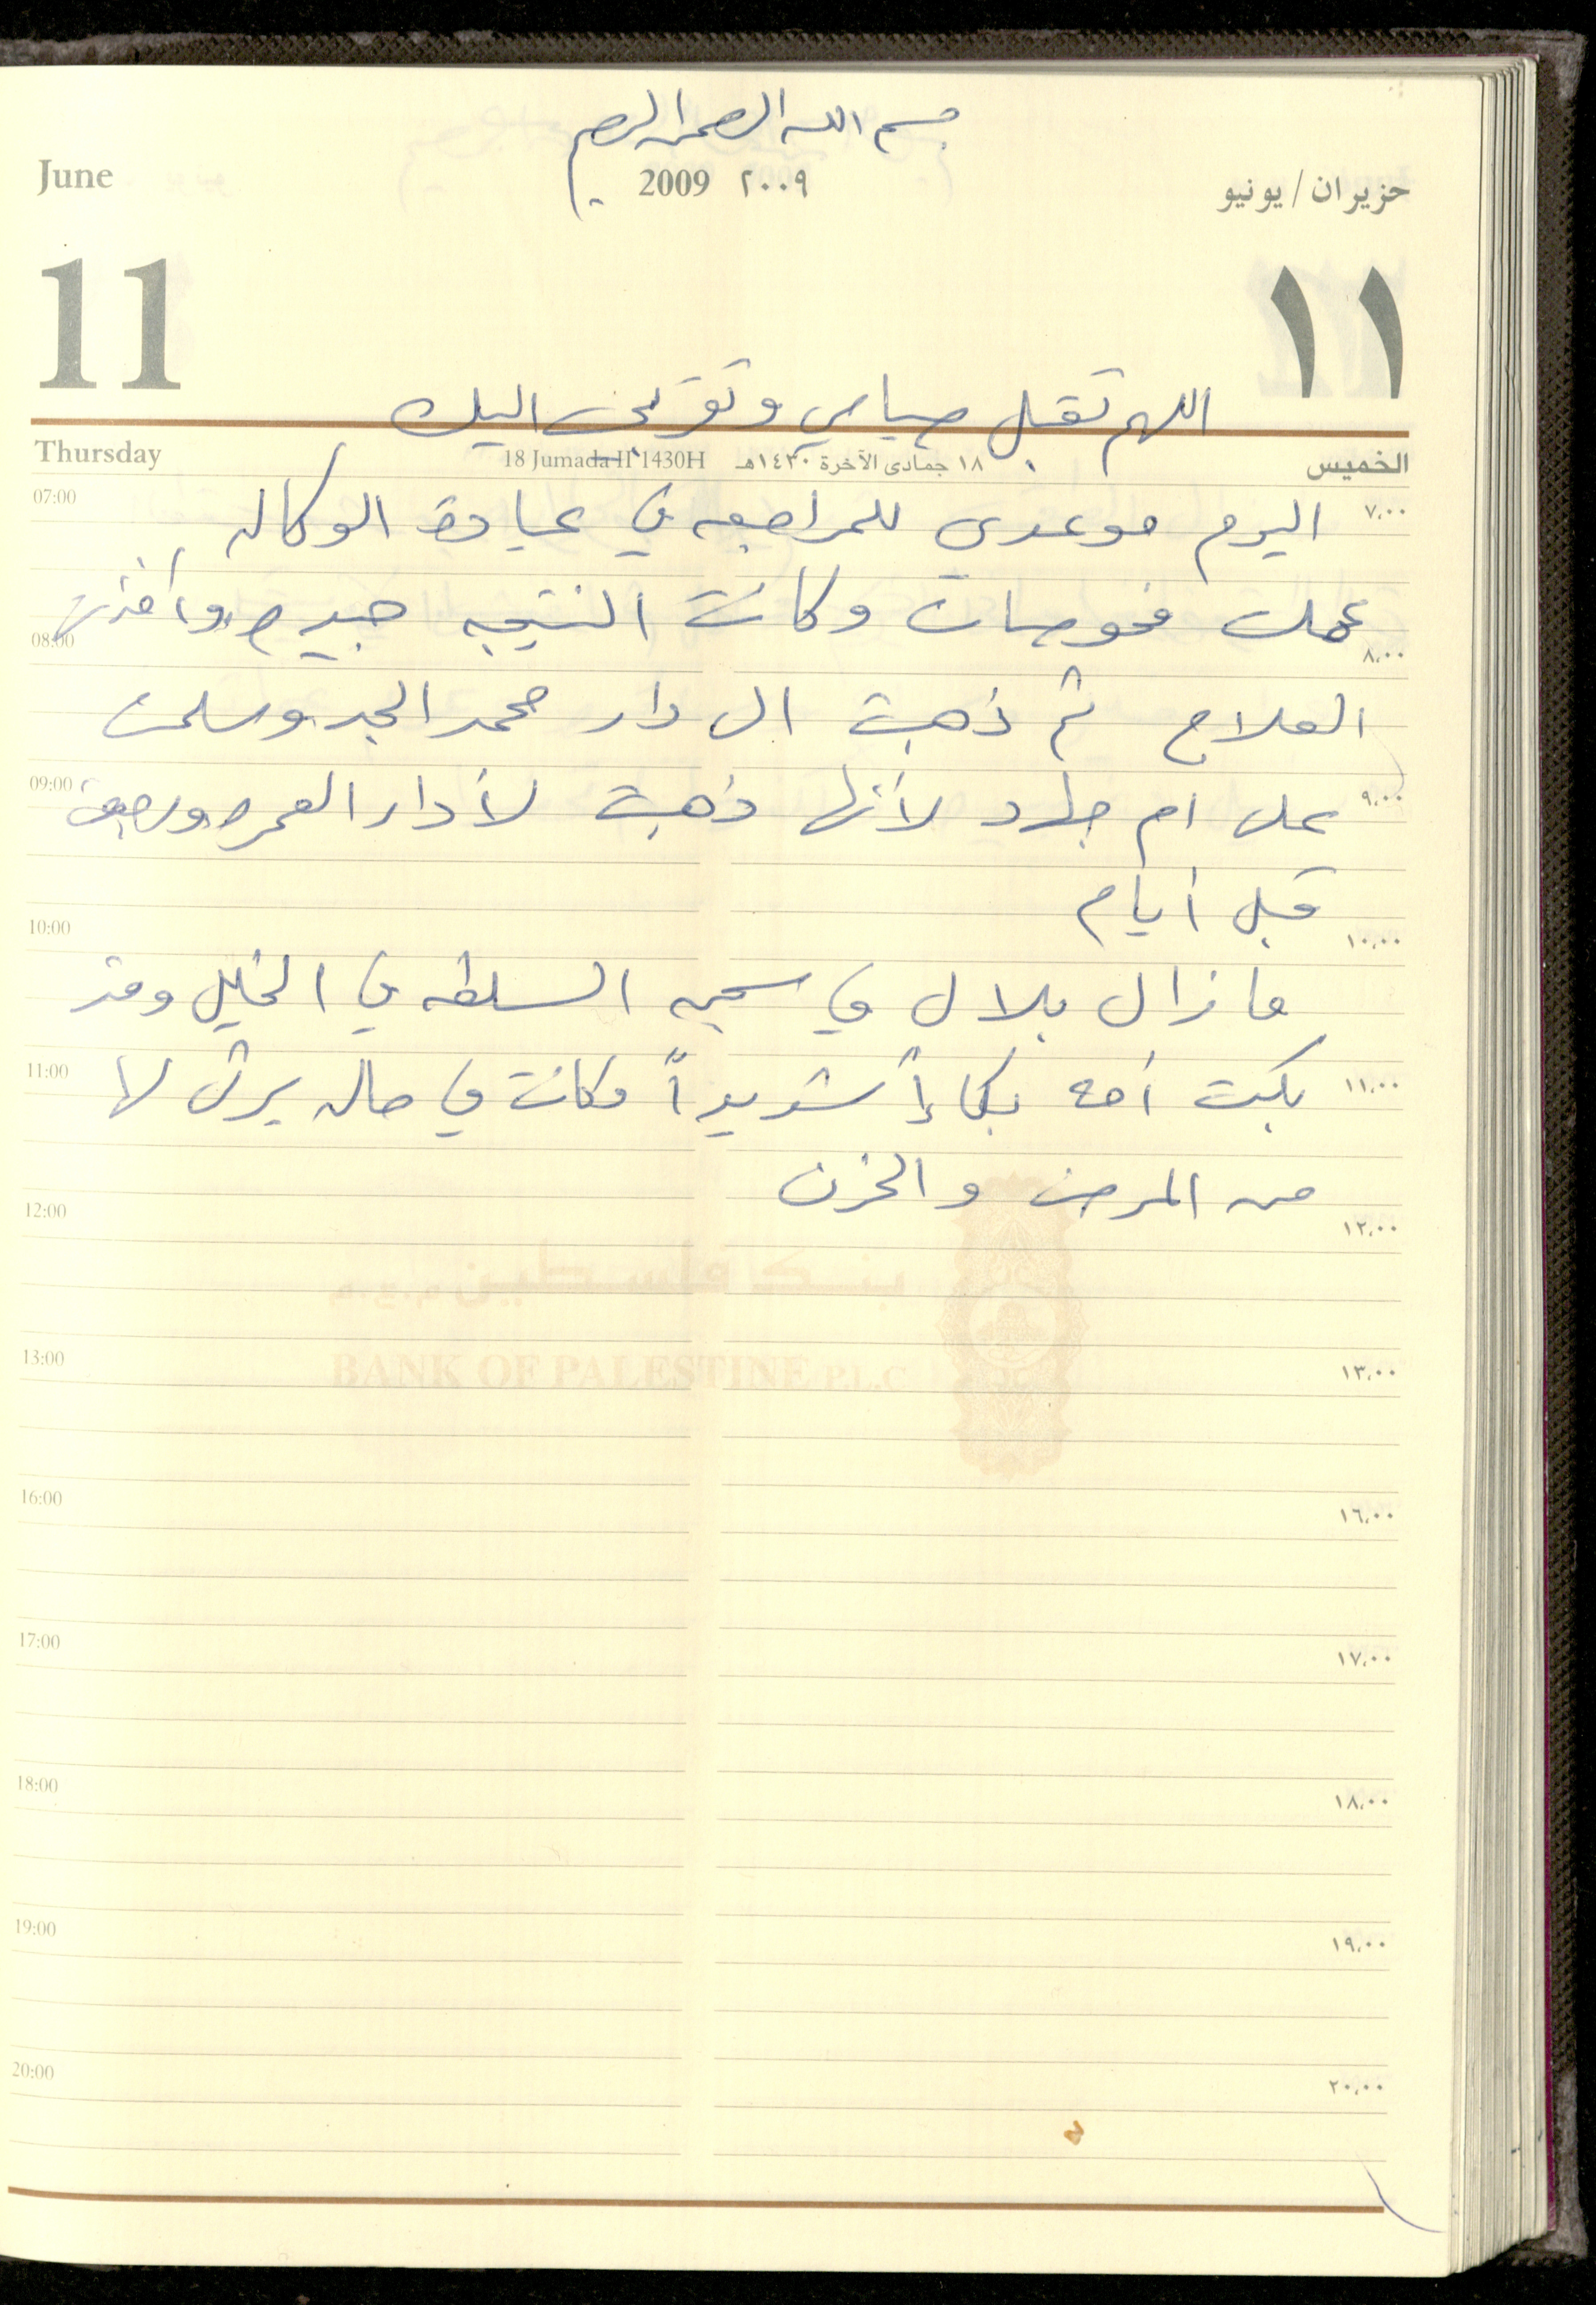 بسم الله الرحمن الرحيم
June 2009 ٢٠٠٩ حزيران / يونيو
11 ١١
اللهم تقبل صيامي وتقربني اليك
Thursday 18 Jumada II 1430H ١٨ جمادى الآخرة ١٤٣٠هـ الخميس
07:00 ٧،٠٠
اليوم موعدي للمراجعه في عيادة الوكاله
عملت فحوصات وكانت النتيجه جيده وأخذت
08:00 ٨،٠٠
العلاج ثم ذهبت الى دار محمد الجد وسلمت
09:00 ٩،٠٠
على ام جهاد لأنها ذهبت لأداء العمره ورجعت
قبل أيام
10:00 ١٠،٠٠
ما زال بلال في سجن السلطه في الخليل وقد
11:00 ١١،٠٠
بكت أمه بكاءً شديداً وكانت في حاله يرثى لها
من المرض والحزن
12:00 ١٢،٠٠
بنك فلسطين م.ع.م
BANK OF PALESTINE P.L.C
13:00 ١٣،٠٠
16:00 ١٦،٠٠
17:00 ١٧،٠٠
18:00 ١٨،٠٠
19:00 ١٩،٠٠
20:00 ٢٠،٠٠